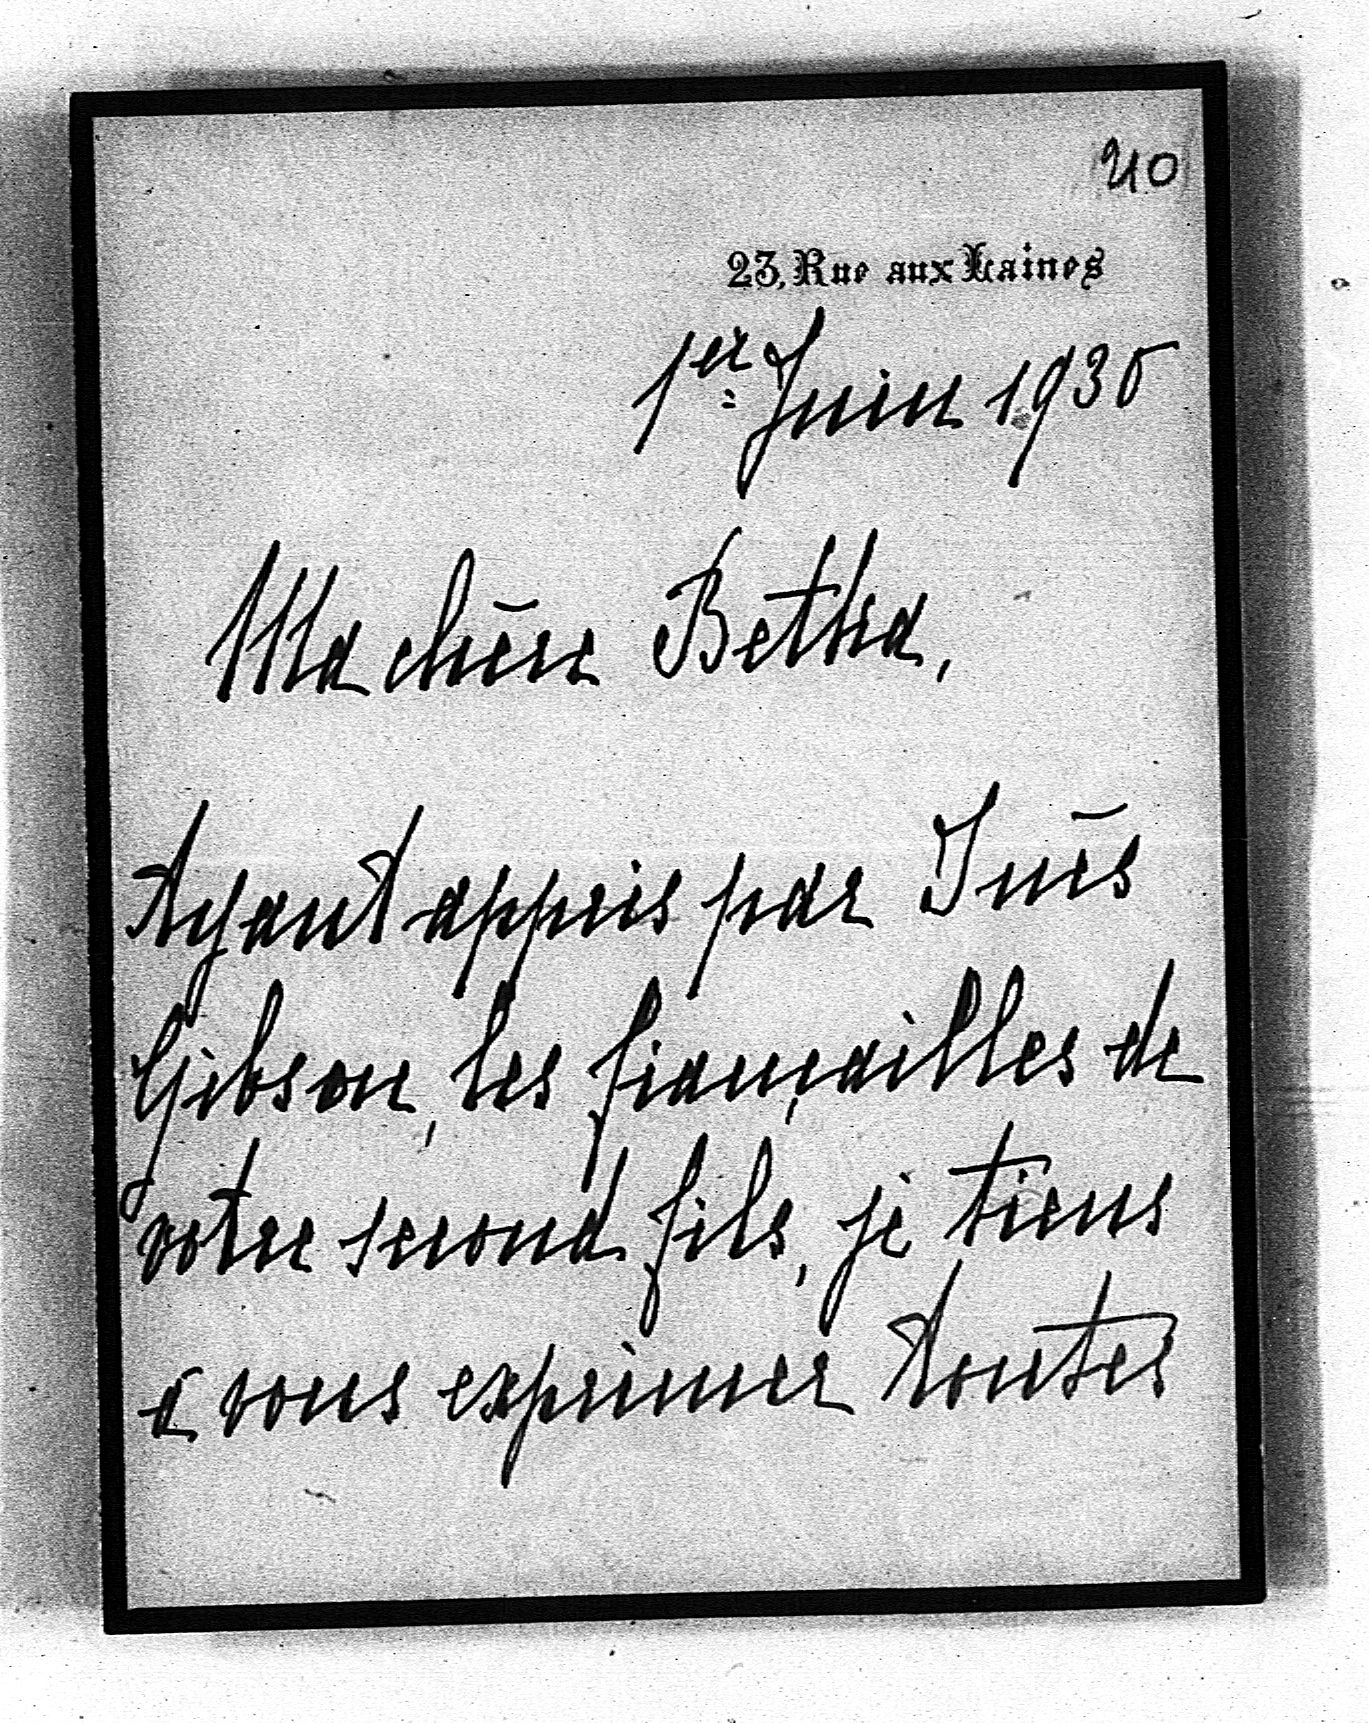 210
23, Rue aux Laines
1er Juin 1935
Ma chère Betha,
Ayant appris par Inès
Gibson, les fiançailles de
votre second fils, je tiens
à vous exprimer toutes